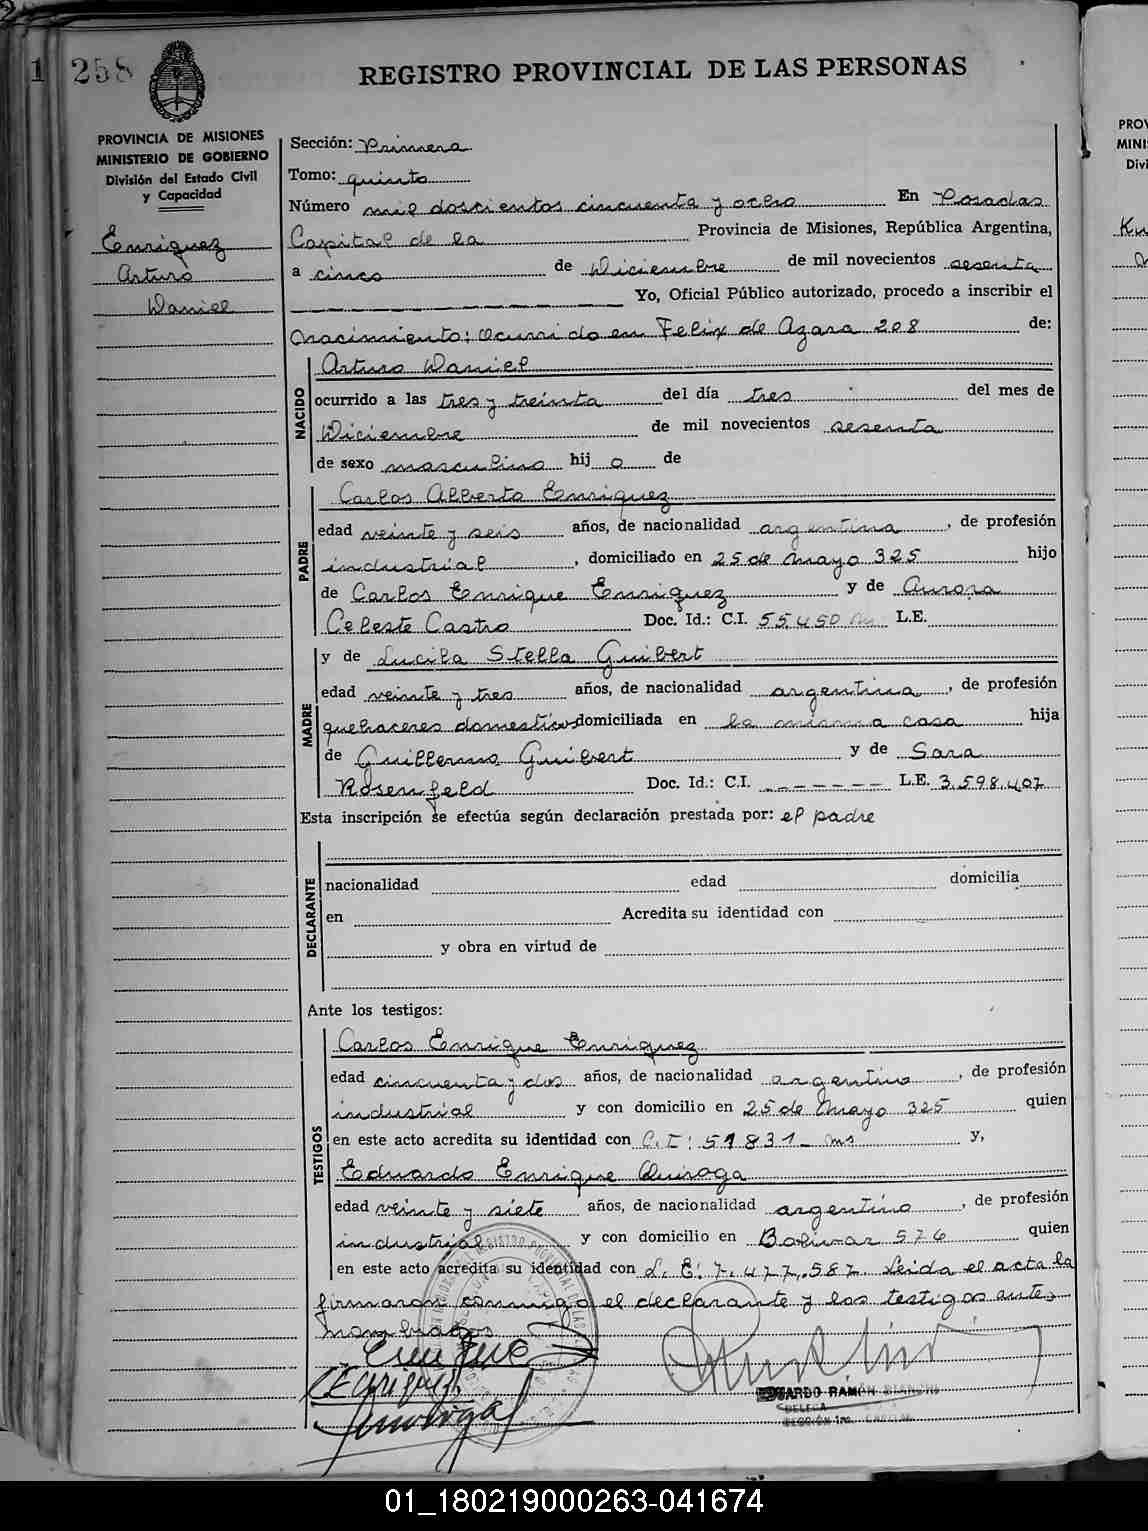 1 258
REGISTRO PROVINCIAL DE LAS PERSONAS
PROVINCIA DE MISIONES
MINISTERIO DE GOBIERNO
División del Estado Civil
y Capacidad
Enriquez
Arturo
Daniel
Sección: Primera
Tomo: quinto
Número mil doscientos cincuenta y ocho En Posadas
Capital de la Provincia de Misiones, República Argentina,
a cinco de Diciembre de mil novecientos sesenta
Yo, Oficial Público autorizado, procedo a inscribir el
nacimiento: ocurrido en Felix de Azara 208 de:
NACIDO
Arturo Daniel
ocurrido a las tres y treinta del día tres del mes de
Diciembre de mil novecientos sesenta
de sexo masculino hij o de
PADRE
Carlos Alberto Enriquez
edad veinte y seis años, de nacionalidad argentina, de profesión
industrial, domiciliado en 25 de Mayo 325 hijo
de Carlos Enrique Enriquez y de Aurora
Celeste Castro Doc. Id.: C.I. 55.450 L.E.
MADRE
y de Lucila Stella Guibert
edad veinte y tres años, de nacionalidad argentina, de profesión
quehaceres domesticos domiciliada en la misma casa hija
de Guillermo Guibert y de Sara
Rosenfeld Doc. Id.: C.I. ------- L.E. 3.598.407
Esta inscripción se efectúa según declaración prestada por: el padre
DECLARANTE
nacionalidad edad domicilia
en Acredita su identidad con
y obra en virtud de
Ante los testigos:
TESTIGOS
Carlos Enrique Enriquez
edad cincuenta y dos años, de nacionalidad argentino, de profesión
industrial y con domicilio en 25 de Mayo 325 quien
en este acto acredita su identidad con C.I: 51831_ ms y,
Eduardo Enrique Quiroga
edad veinte y siete años, de nacionalidad argentino, de profesión
industrial y con domicilio en Bolivar 576 quien
en este acto acredita su identidad con L.E: 7.477.587. Leida el acta la
firmaron conmigo el declarante y los testigos ante_
nombrados
EDUARDO RAMÓN BIANCHI
01_180219000263-041674